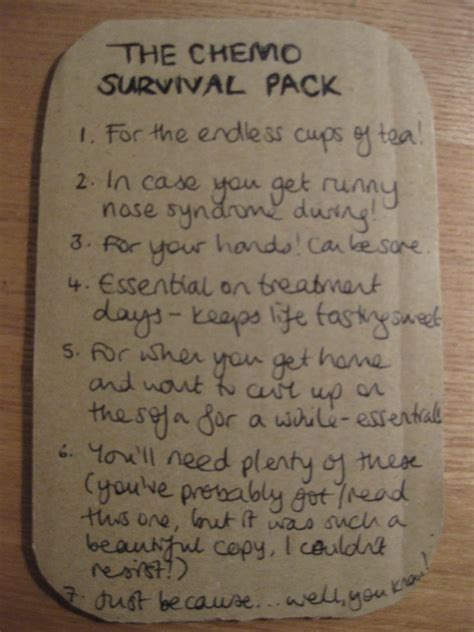 THE CHEMO
SURVIVAL PACK
1. For the endless cups of tea!
2. In case you get runny
nose syndrome during!
3. For your hands! Can be sore.
4. Essential on treatment
days - keeps life tasting sweet
5. For when you get home
and want to curl up on
the sofa for a while - essential!
6. You'll need plenty of these
(you've probably got/read
this one, but it was such a
beautiful copy, I couldn't
resist!)
7. Just because... well, you know!